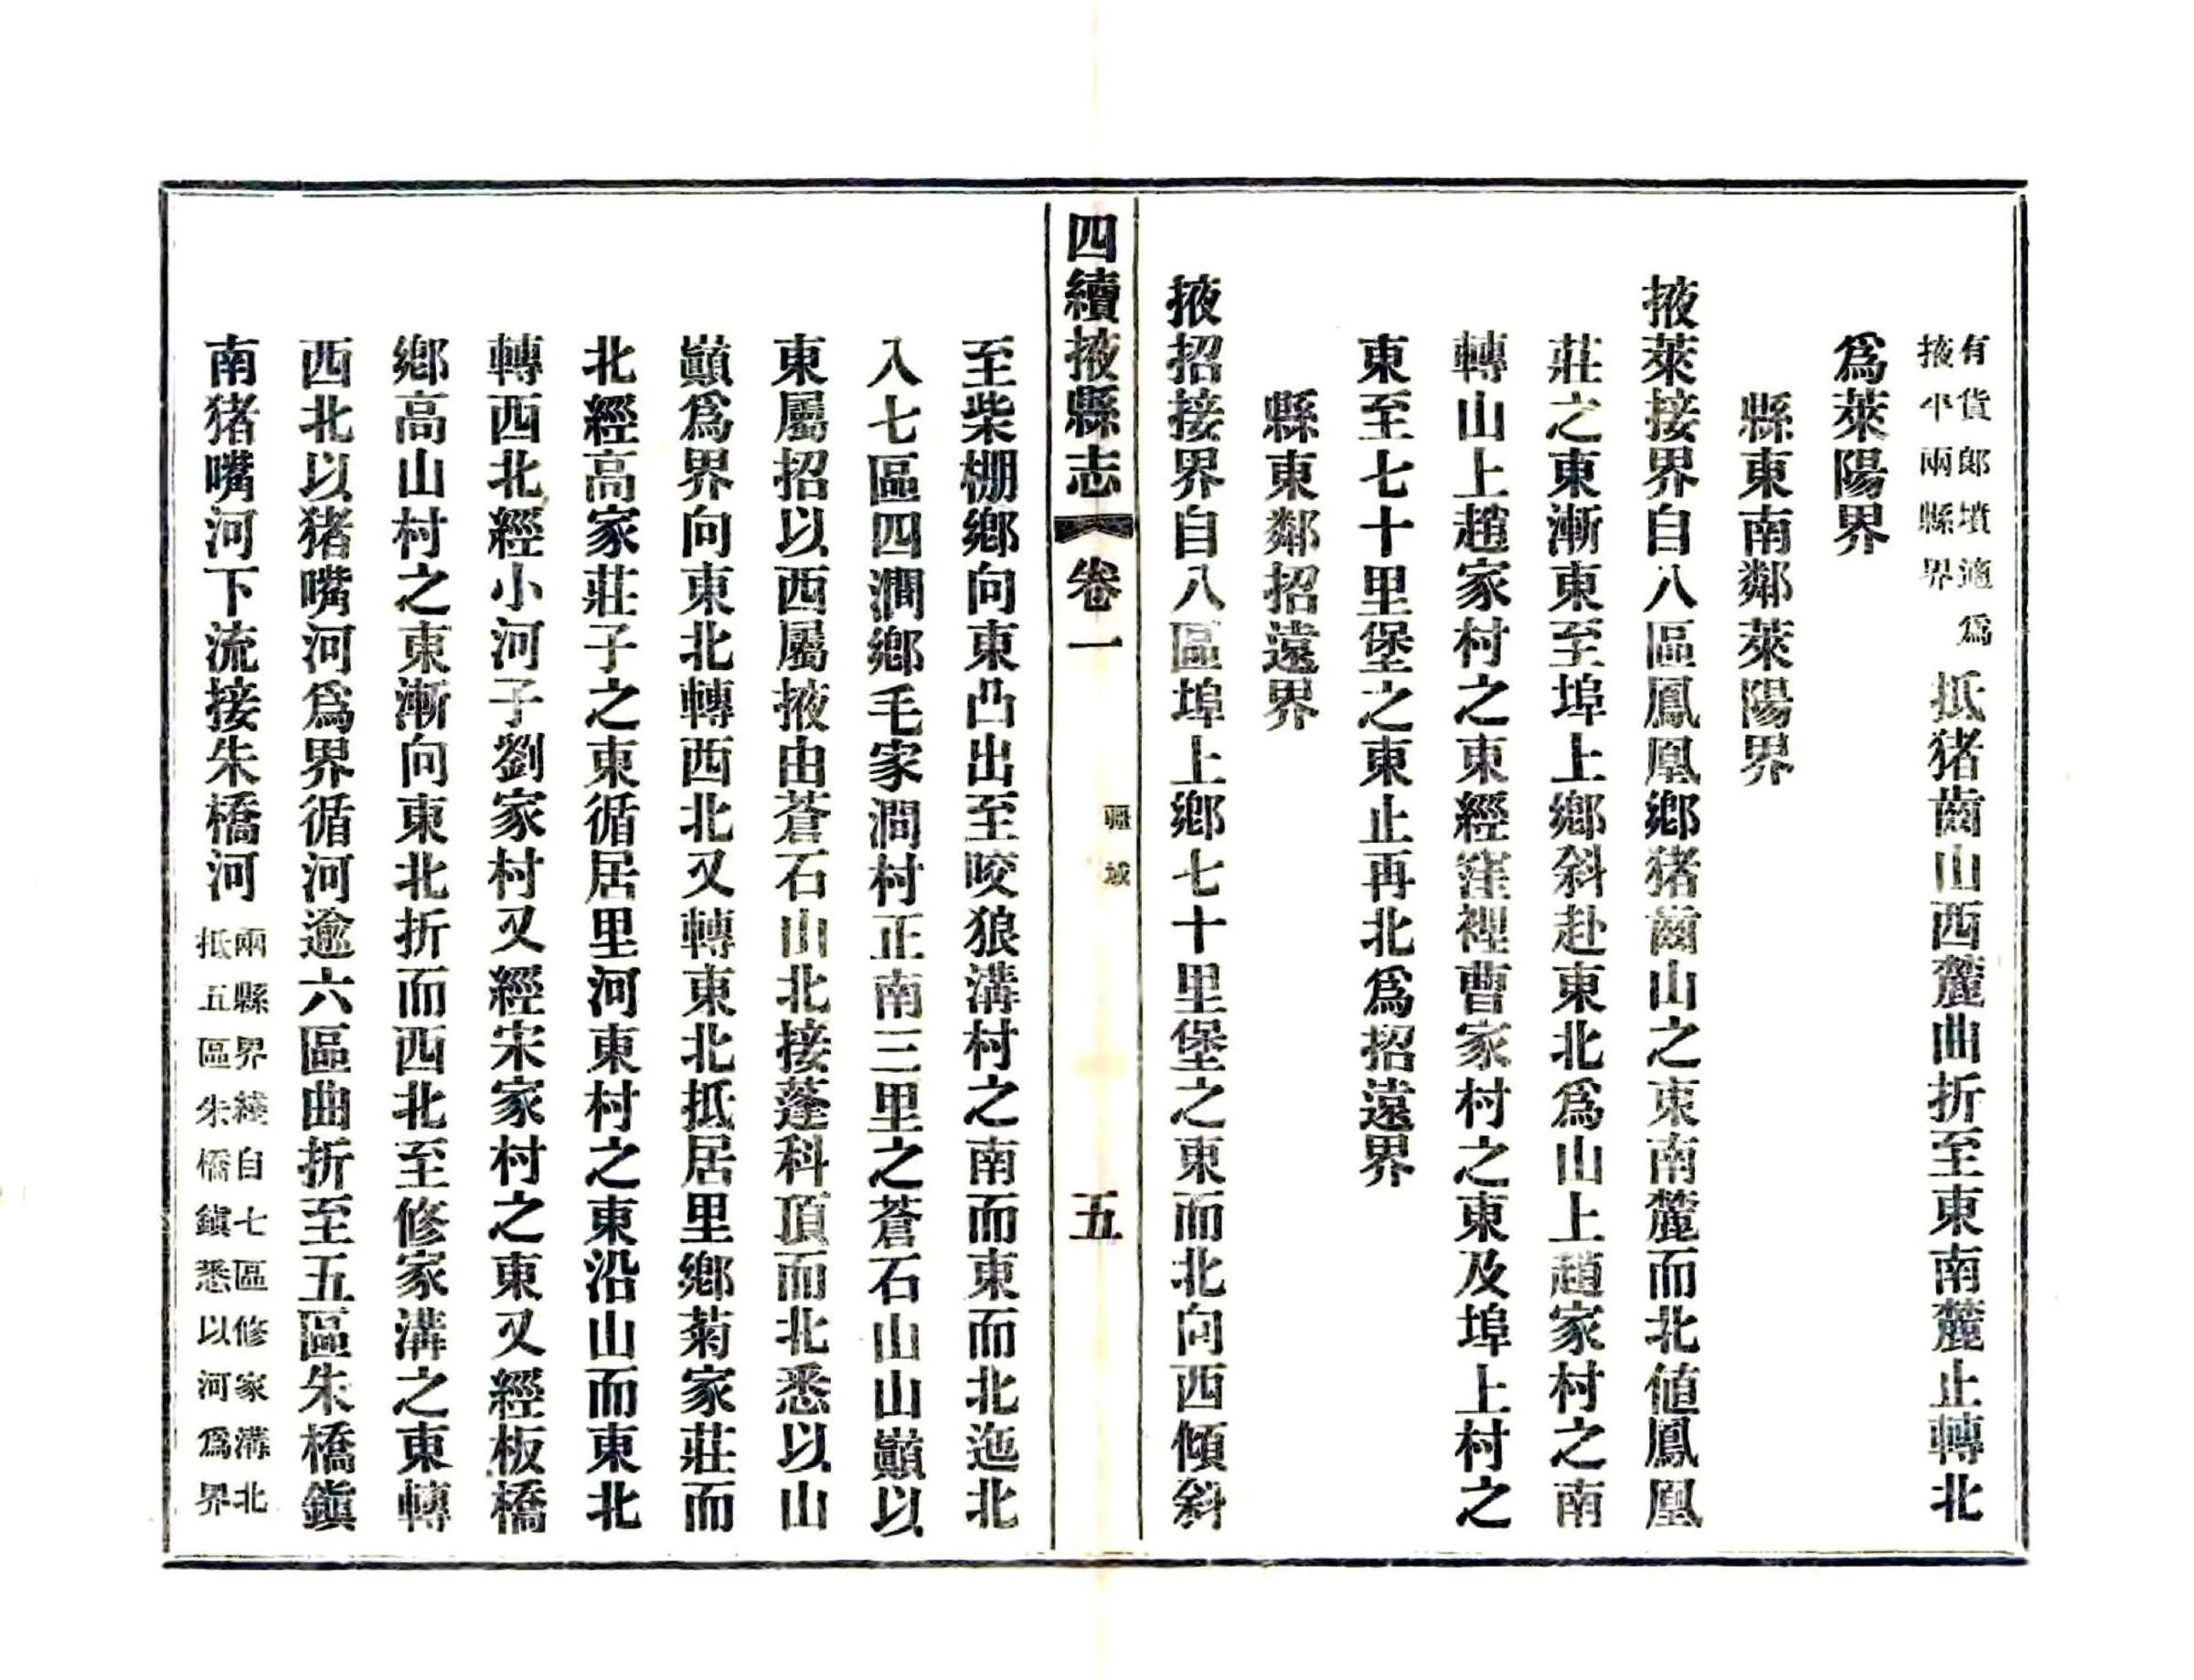 有貨郎墳適爲
掖平兩縣界
抵猪齒山西麓曲折至東南麓止轉北
爲萊陽界
縣東南鄰萊陽界
掖萊接界自八區鳳凰鄉猪齒山之東南麓而北値鳳凰
莊之東漸東至埠上鄉斜赴東北爲山上趙家村之南
轉山上趙家村之東經窪裡曹家村之東及埠上村之
東至七十里堡之東止再北爲招遠界
縣東鄰招遠界
掖招接界自八區埠上鄉七十里堡之東而北向西傾斜
四續掖縣志 卷一 疆域 五
至柴棚鄉向東凸出至咬狼溝村之南而東而北迤北
入七區四澗鄉毛家澗村正南三里之蒼石山山巔以
東屬招以西屬掖由蒼石山北接蓬科頂而北悉以山
巔爲界向東北轉西北又轉東北抵居里鄉菊家莊而
北經高家莊子之東循居里河東村之東沿山而東北
轉西北經小河子劉家村又經宋家村之東又經板橋
鄉高山村之東漸向東北折而西北至修家溝之東轉
西北以猪嘴河爲界循河逾六區曲折至五區朱橋鎭
南猪嘴河下流接朱橋河
兩縣界綫自七區修家溝北
抵五區朱橋鎭悉以河爲界